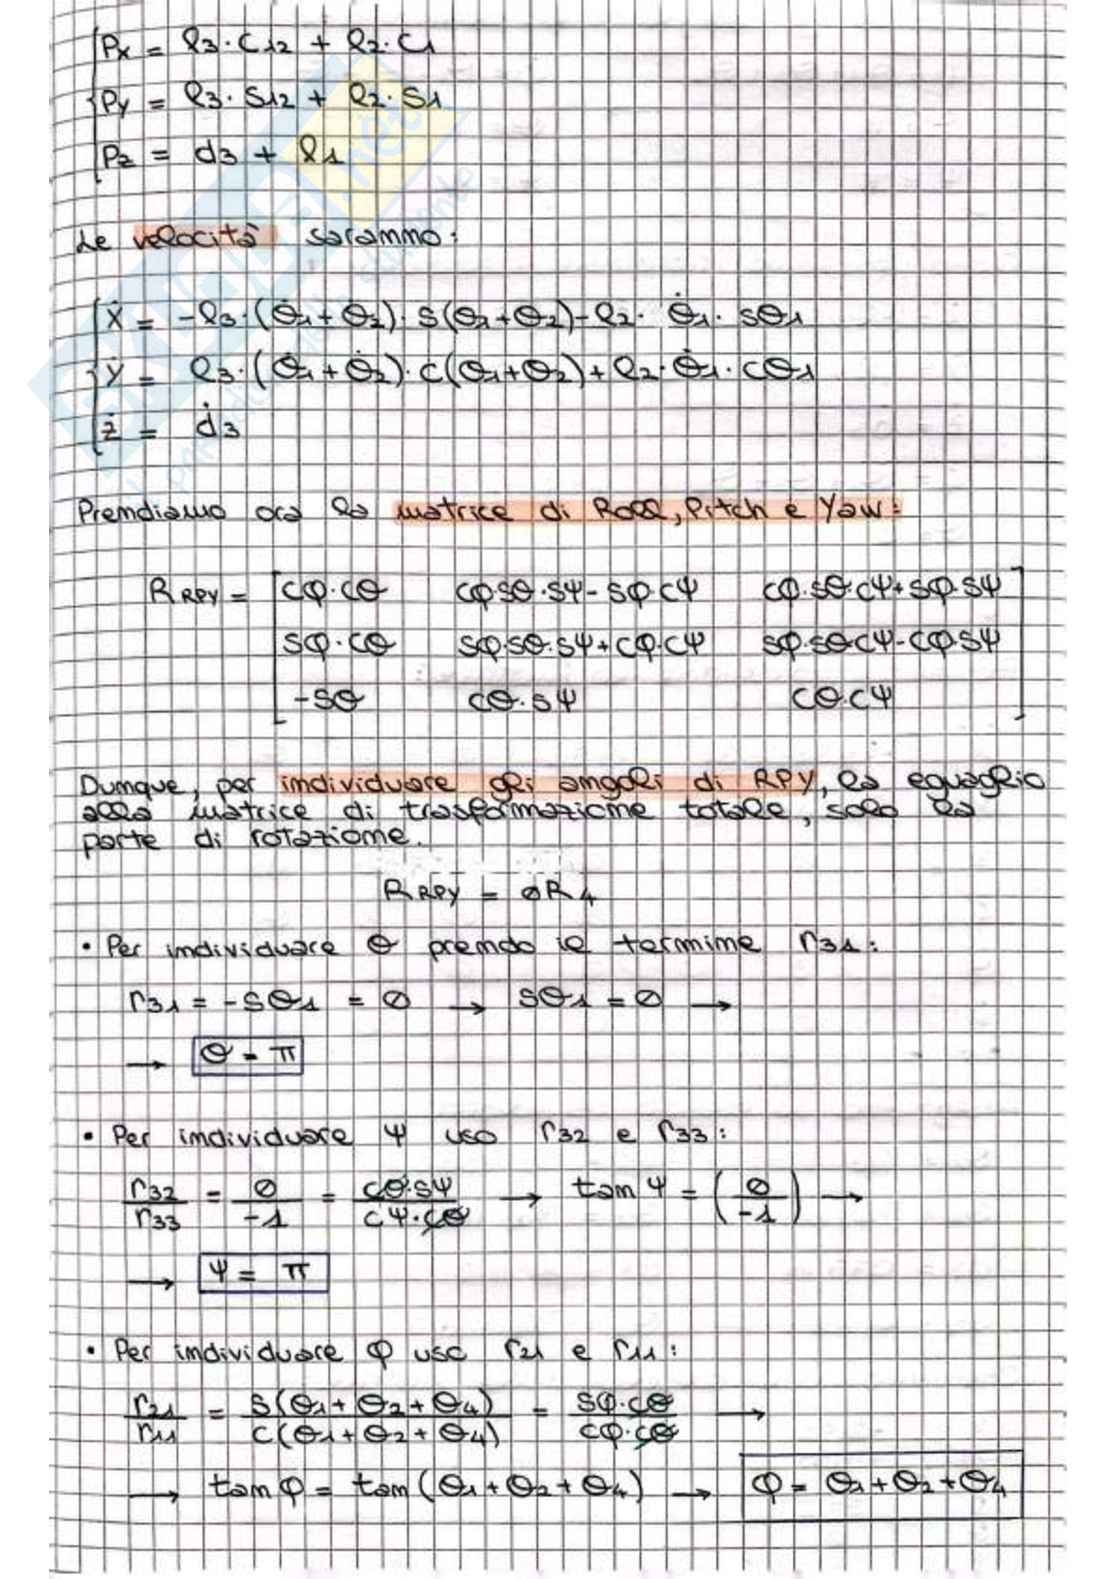 Px = l3·C12 + l2·C1
Py = l3·S12 + l2·S1
Pz = d3 + l1
Le velocità saranno:
Ẋ = -l3·(θ̇1+θ̇2)·S(θ1+θ2)-l2·θ̇1·sθ1
Ẏ = l3·(θ̇1+θ̇2)·C(θ1+θ2)+l2·θ̇1·cθ1
ż = ḋ3
Prendiamo ora la matrice di Roll, Pitch e Yaw:
RRPY = [cφ·cθ cφ·sθ·sψ-sφ·cψ cφ·sθ·cψ+sφ·sψ
sφ·cθ sφ·sθ·sψ+cφ·cψ sφ·sθ·cψ-cφ·sψ
-sθ cθ·sψ cθ·cψ]
Dunque, per individuare gli angoli di RPY, la eguaglio
alla matrice di trasformazione totale, solo la
parte di rotazione.
RRPY = 0R4
• Per individuare θ prendo il termine r31:
r31 = -sθ1 = 0 → sθ1 = 0 →
→ θ = π
• Per individuare ψ uso r32 e r33:
r32/r33 = 0/-1 = cθ·sψ/cψ·cθ → tan ψ = (0/-1) →
→ ψ = π
• Per individuare φ uso r21 e r11:
r21/r11 = S(θ1+θ2+θ4)/C(θ1+θ2+θ4) = sφ·cθ/cφ·cθ →
→ tan φ = tan(θ1+θ2+θ4) → φ = θ1+θ2+θ4